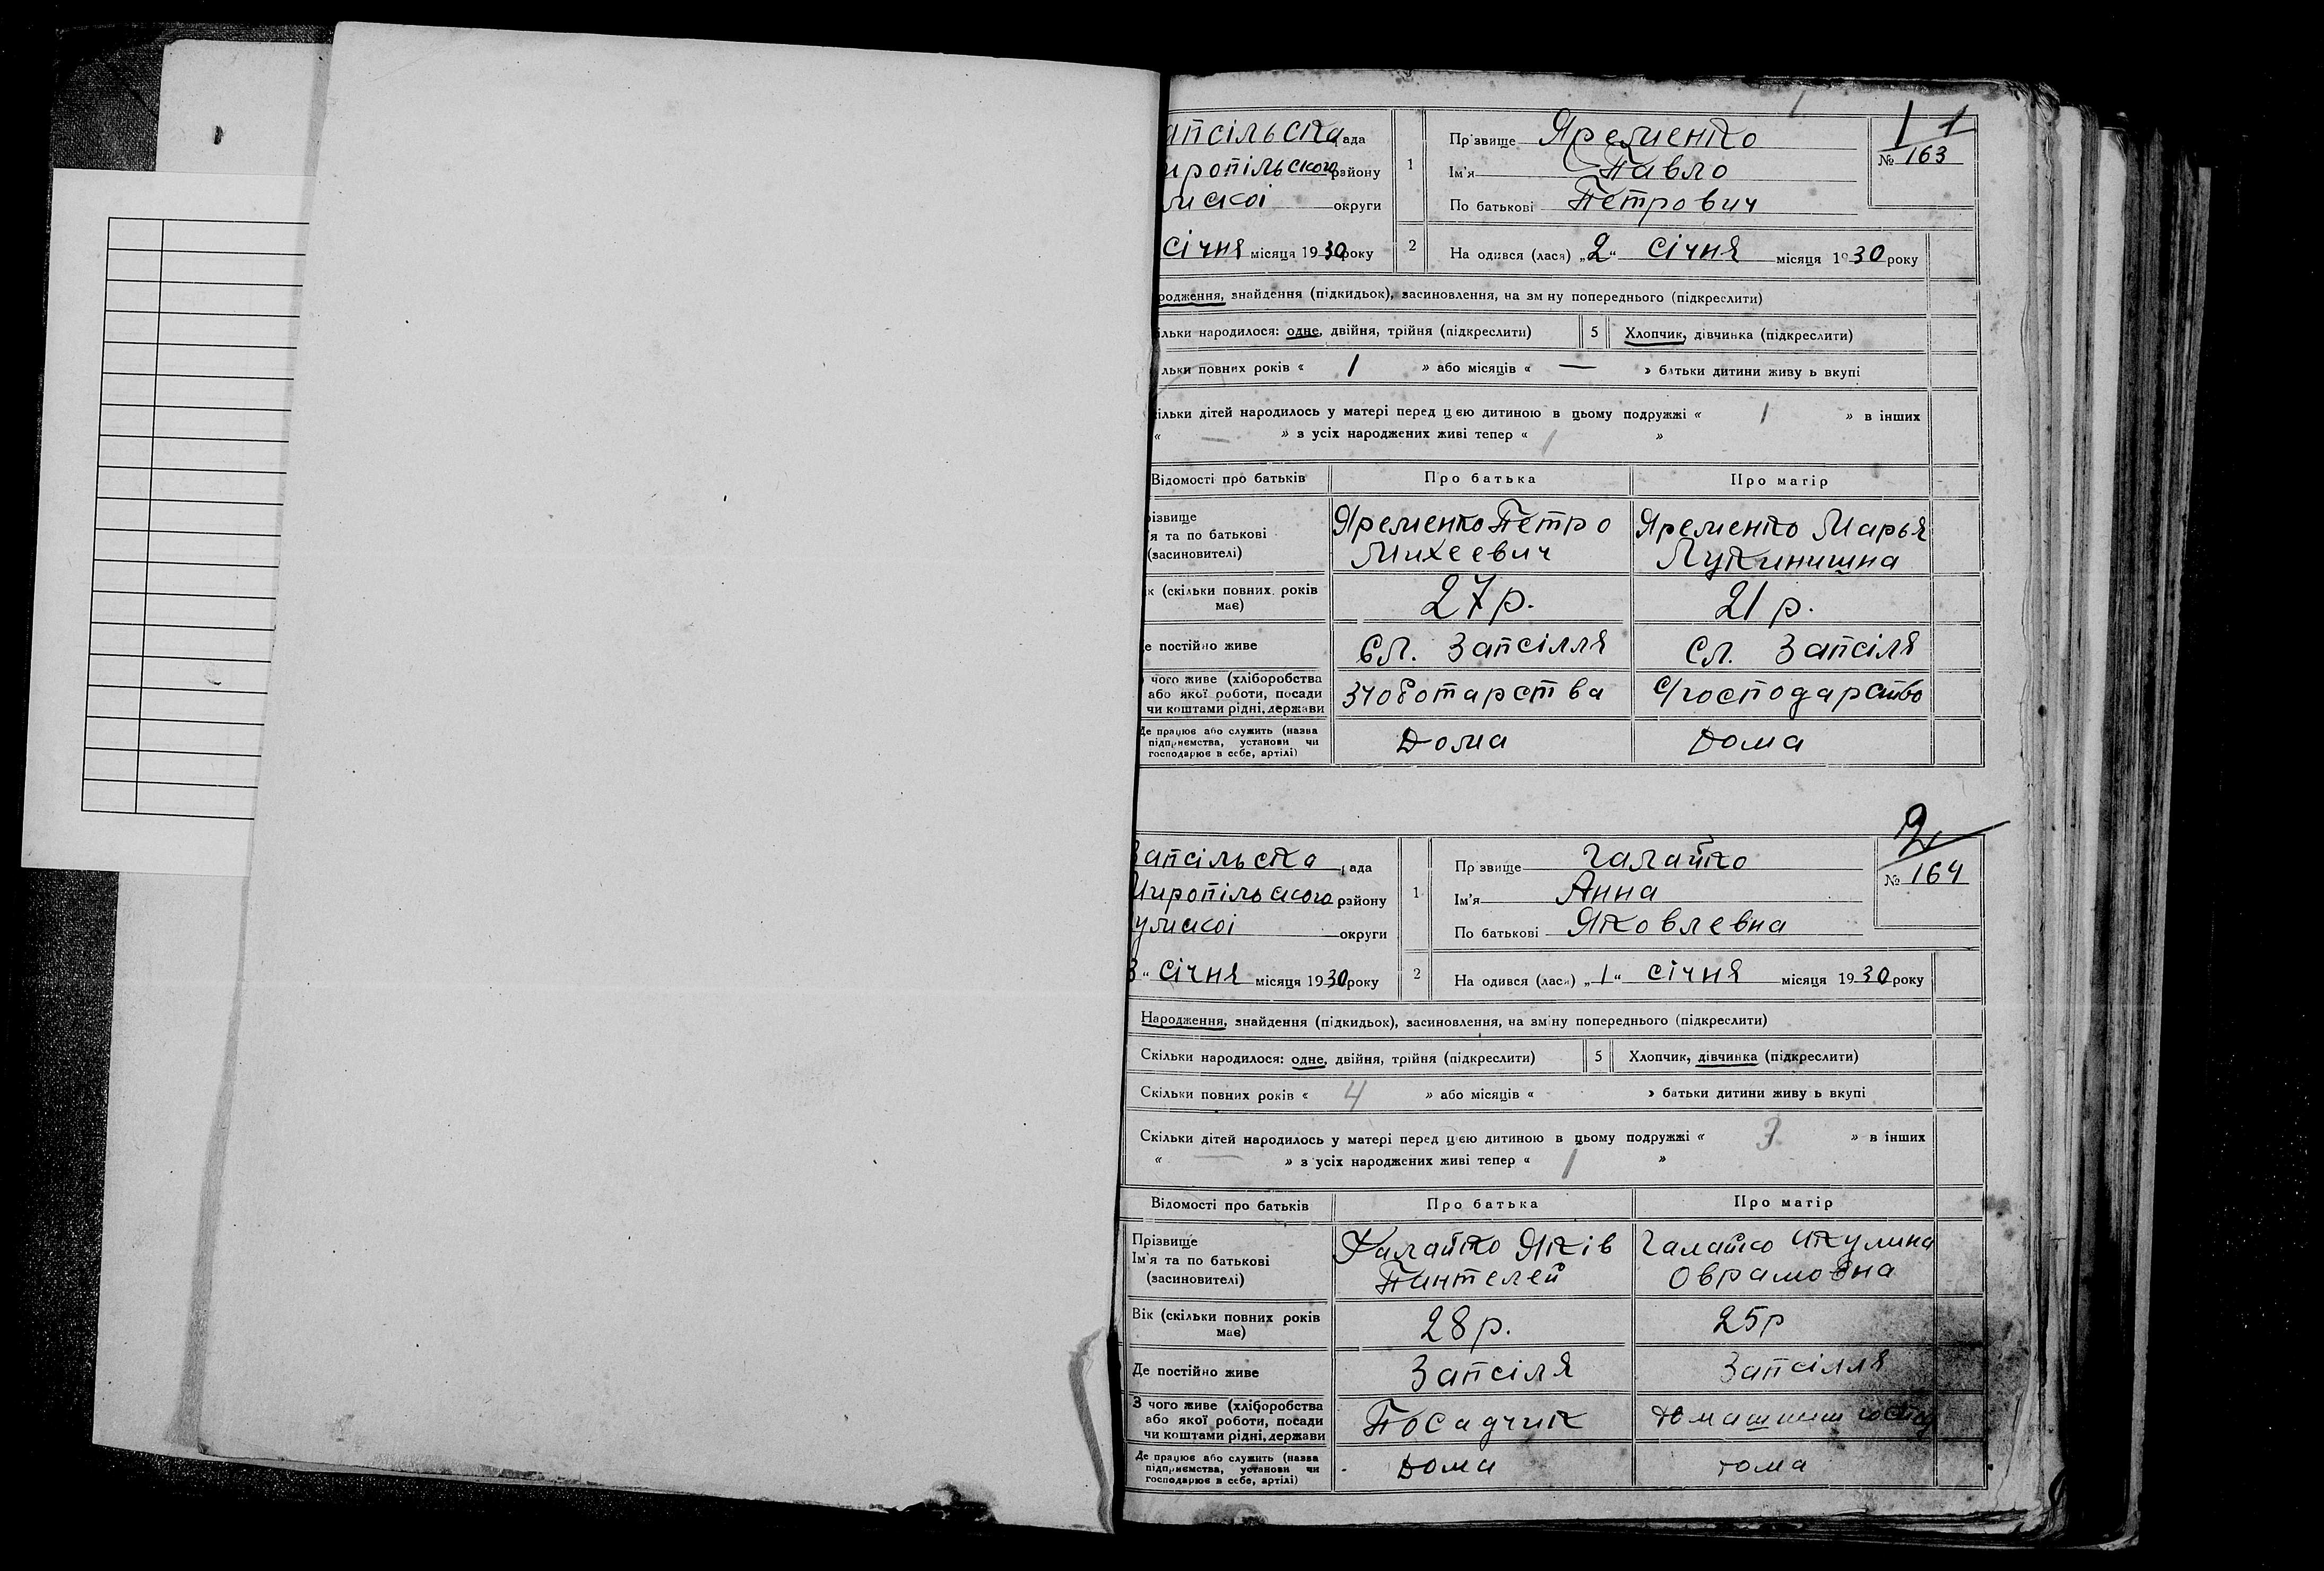 апсільска рада
иропільського району
мскої округи
січня місяця 1930 року
1
Прізвище Яременко
Ім'я Павло
По батькові Петрович
1 1
№ 163
2
На одився (лася) „2“ січня місяця 1930 року
родження, знайдення (підкидьок), засиновлення, на зм ну попереднього (підкреслити)
ільки народилося: одне, двійня, трійня (підкреслити)
5 Хлопчик, дівчинка (підкреслити)
льки повних років « 1 » або місяців « — » батьки дитини живу ь вкупі
ільки дітей народилось у матері перед цією дитиною в цьому подружжі « 1 » в інших
« — » з усіх народжених живі тепер « 1 »
Відомості про батьків Про батька Про матір
різвище
я та по батькові
(засиновителі)
Яременко Петро
Михеевич
Яременко Марья
Лукинишна
ік (скільки повних років
має)
27 р. 21 р.
е постійно живе Сл. Запсілля Сл. Запсіля
чого живе (хліборобства
або якої роботи, посади
чи коштами рідні, держави
Зчоботарства С/господарство
Де працює або служить (назва
підприємства, установи чи
господарює в себе, артілі)
Дома Дома
2
Запсільска рада
Миропільського району
умскої округи
3“ січня місяця 1930 року
1
Пр звище Галайко
Ім'я Анна
По батькові Яковлевна
№ 164
2
На одився (лася) „1“ січня місяця 1930 року
Народження, знайдення (підкидьок), засиновлення, на зміну попереднього (підкреслити)
Скільки народилося: одне, двійня, трійня (підкреслити)
5 Хлопчик, дівчинка (підкреслити)
Скільки повних років « 4 » або місяців « » батьки дитини живу ь вкупі
Скільки дітей народилось у матері перед цією дитиною в цьому подружжі « 3 » в інших
« — » з усіх народжених живі тепер « 1 »
Відомості про батьків Про батька Про матір
Прізвище
Ім'я та по батькові
(засиновителі)
Халайко Яків
Пантелей
Галайко Акулина
Оврамовна
Вік (скільки повних років
має)
28 р. 25 р
Де постійно живе Запсіля Запсілля
З чого живе (хліборобства
або якої роботи, посади
чи коштами рідні, держави
Посадчик
Де працює або служить (назва
підприємства, установи чи
господарює в себе, артілі)
Дома дома